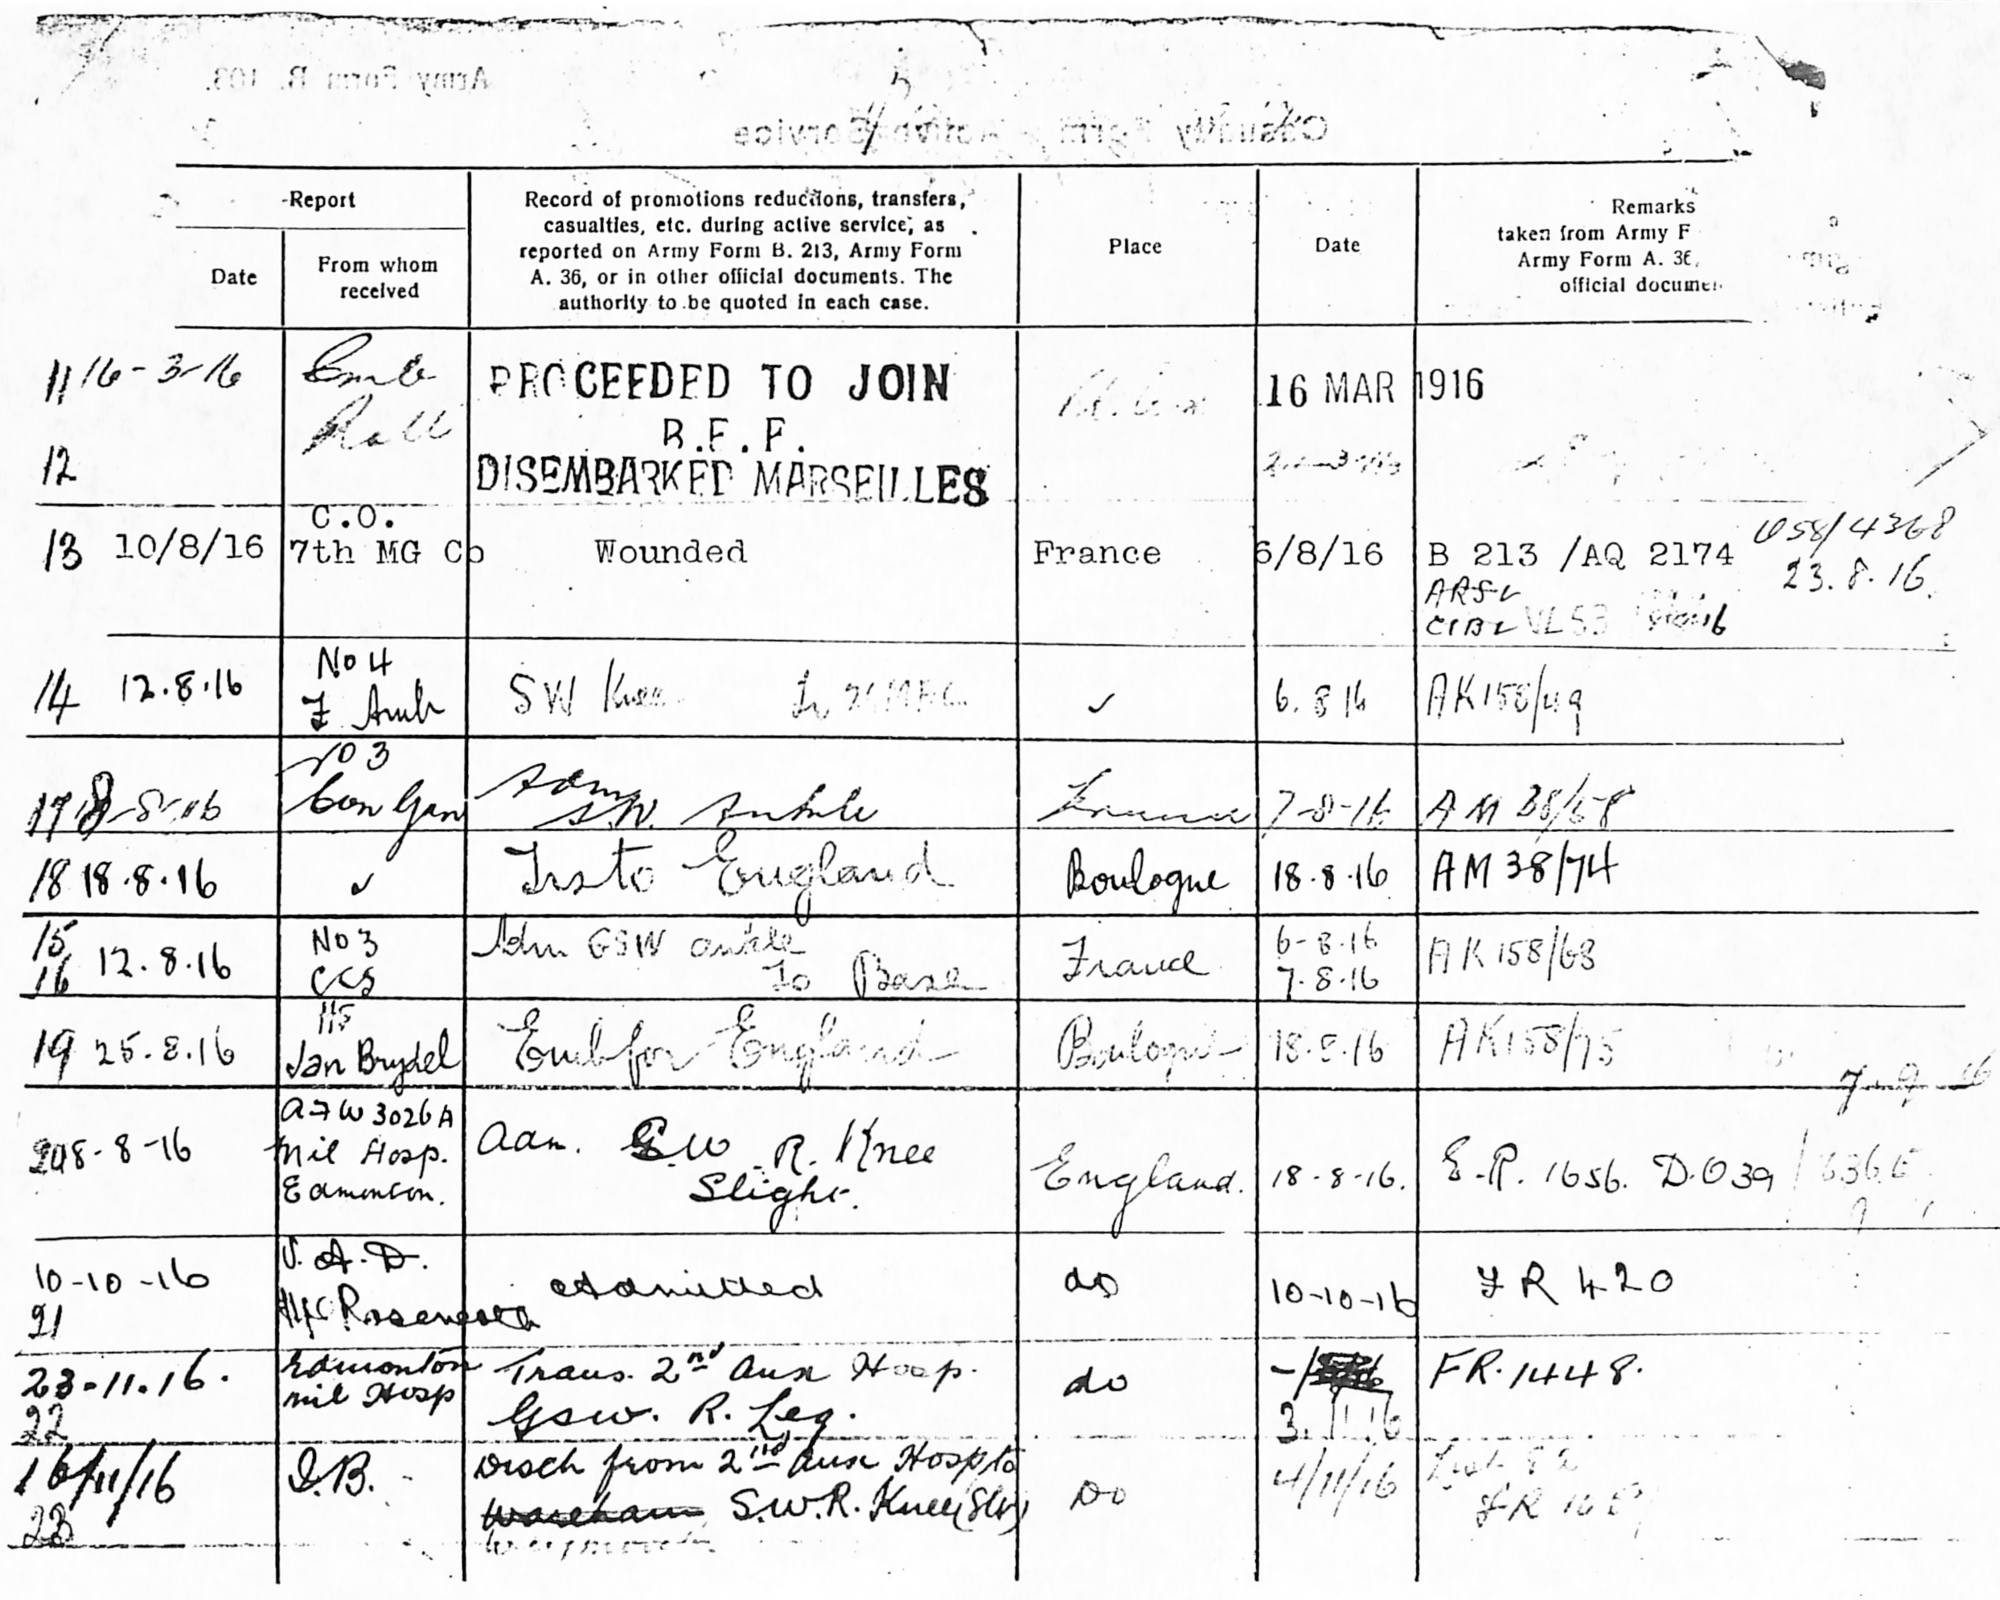 Army Form B. 103.
Casualty Form - Active Service
Report
Date
From whom
received
Record of promotions reductions, transfers,
casualties, etc. during active service, as
reported on Army Form B. 213, Army Form
A. 36, or in other official documents. The
authority to be quoted in each case.
Place
Date
Remarks
taken from Army F
Army Form A. 36,
official documen
11 16-3-16
Emb
Roll
PROCEEDED TO JOIN
B.E.F.
DISEMBARKED MARSEILLES
16 MAR 1916
12
13 10/8/16
C.O.
7th MG Co
Wounded
France
6/8/16
B 213 /AQ 2174
23.8.16.
14 12.8.16
No 4
F Amb
SW Knee
✓
6.8.16
AK158/49
17 8-8-16
No 3
Can Gen
Adm
S.W. Ankle
France
7-8-16
AM 38/58
18 18.8.16
✓
Trs to England
Boulogne
18.8.16
AM 38/74
15
16 12.8.16
No 3
CCS
Adm GSW ankle
To Base
France
6-8.16
7.8.16
AK 158/68
19 25.8.16
HS
Jan Brydel
Emb for England
Boulogne
18.8.16
AK158/75
7-9-16
18-8-16
A F W 3026A
Mil Hosp.
Edmonton.
Adm. S.W. R. Knee
Slight.
England.
18-8-16.
E.R. 1656. D.O 39
10-10-16
21
V.A.D.
Admitted
do
10-10-16
FR 420
23.11.16.
22
Edmonton
Mil Hosp
Trans. 2nd Aux Hosp.
GSW. R. Leg.
do
3.11.16
FR.1448.
16/11/16
23
D.B.
Disch from 2nd Aux Hosp to
Wareham S.W.R. Knee (Slt)
Do
4/11/16